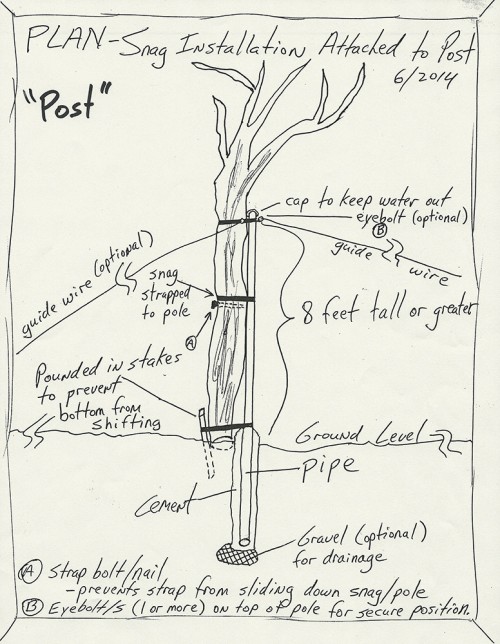 PLAN - Snag Installation Attached to Post
6/2014
"Post"
cap to keep water out
eyebolt (optional)
B
guide wire
guide wire (optional)
snag
strapped
to pole
A
8 feet tall or greater
Pounded in stakes
to prevent
bottom from
shifting
Ground Level
pipe
cement
Gravel (optional)
for drainage
A Strap bolt/nail
- prevents strap from sliding down snag/pole
B Eyebolt/s (1 or more) on top of pole for secure position.